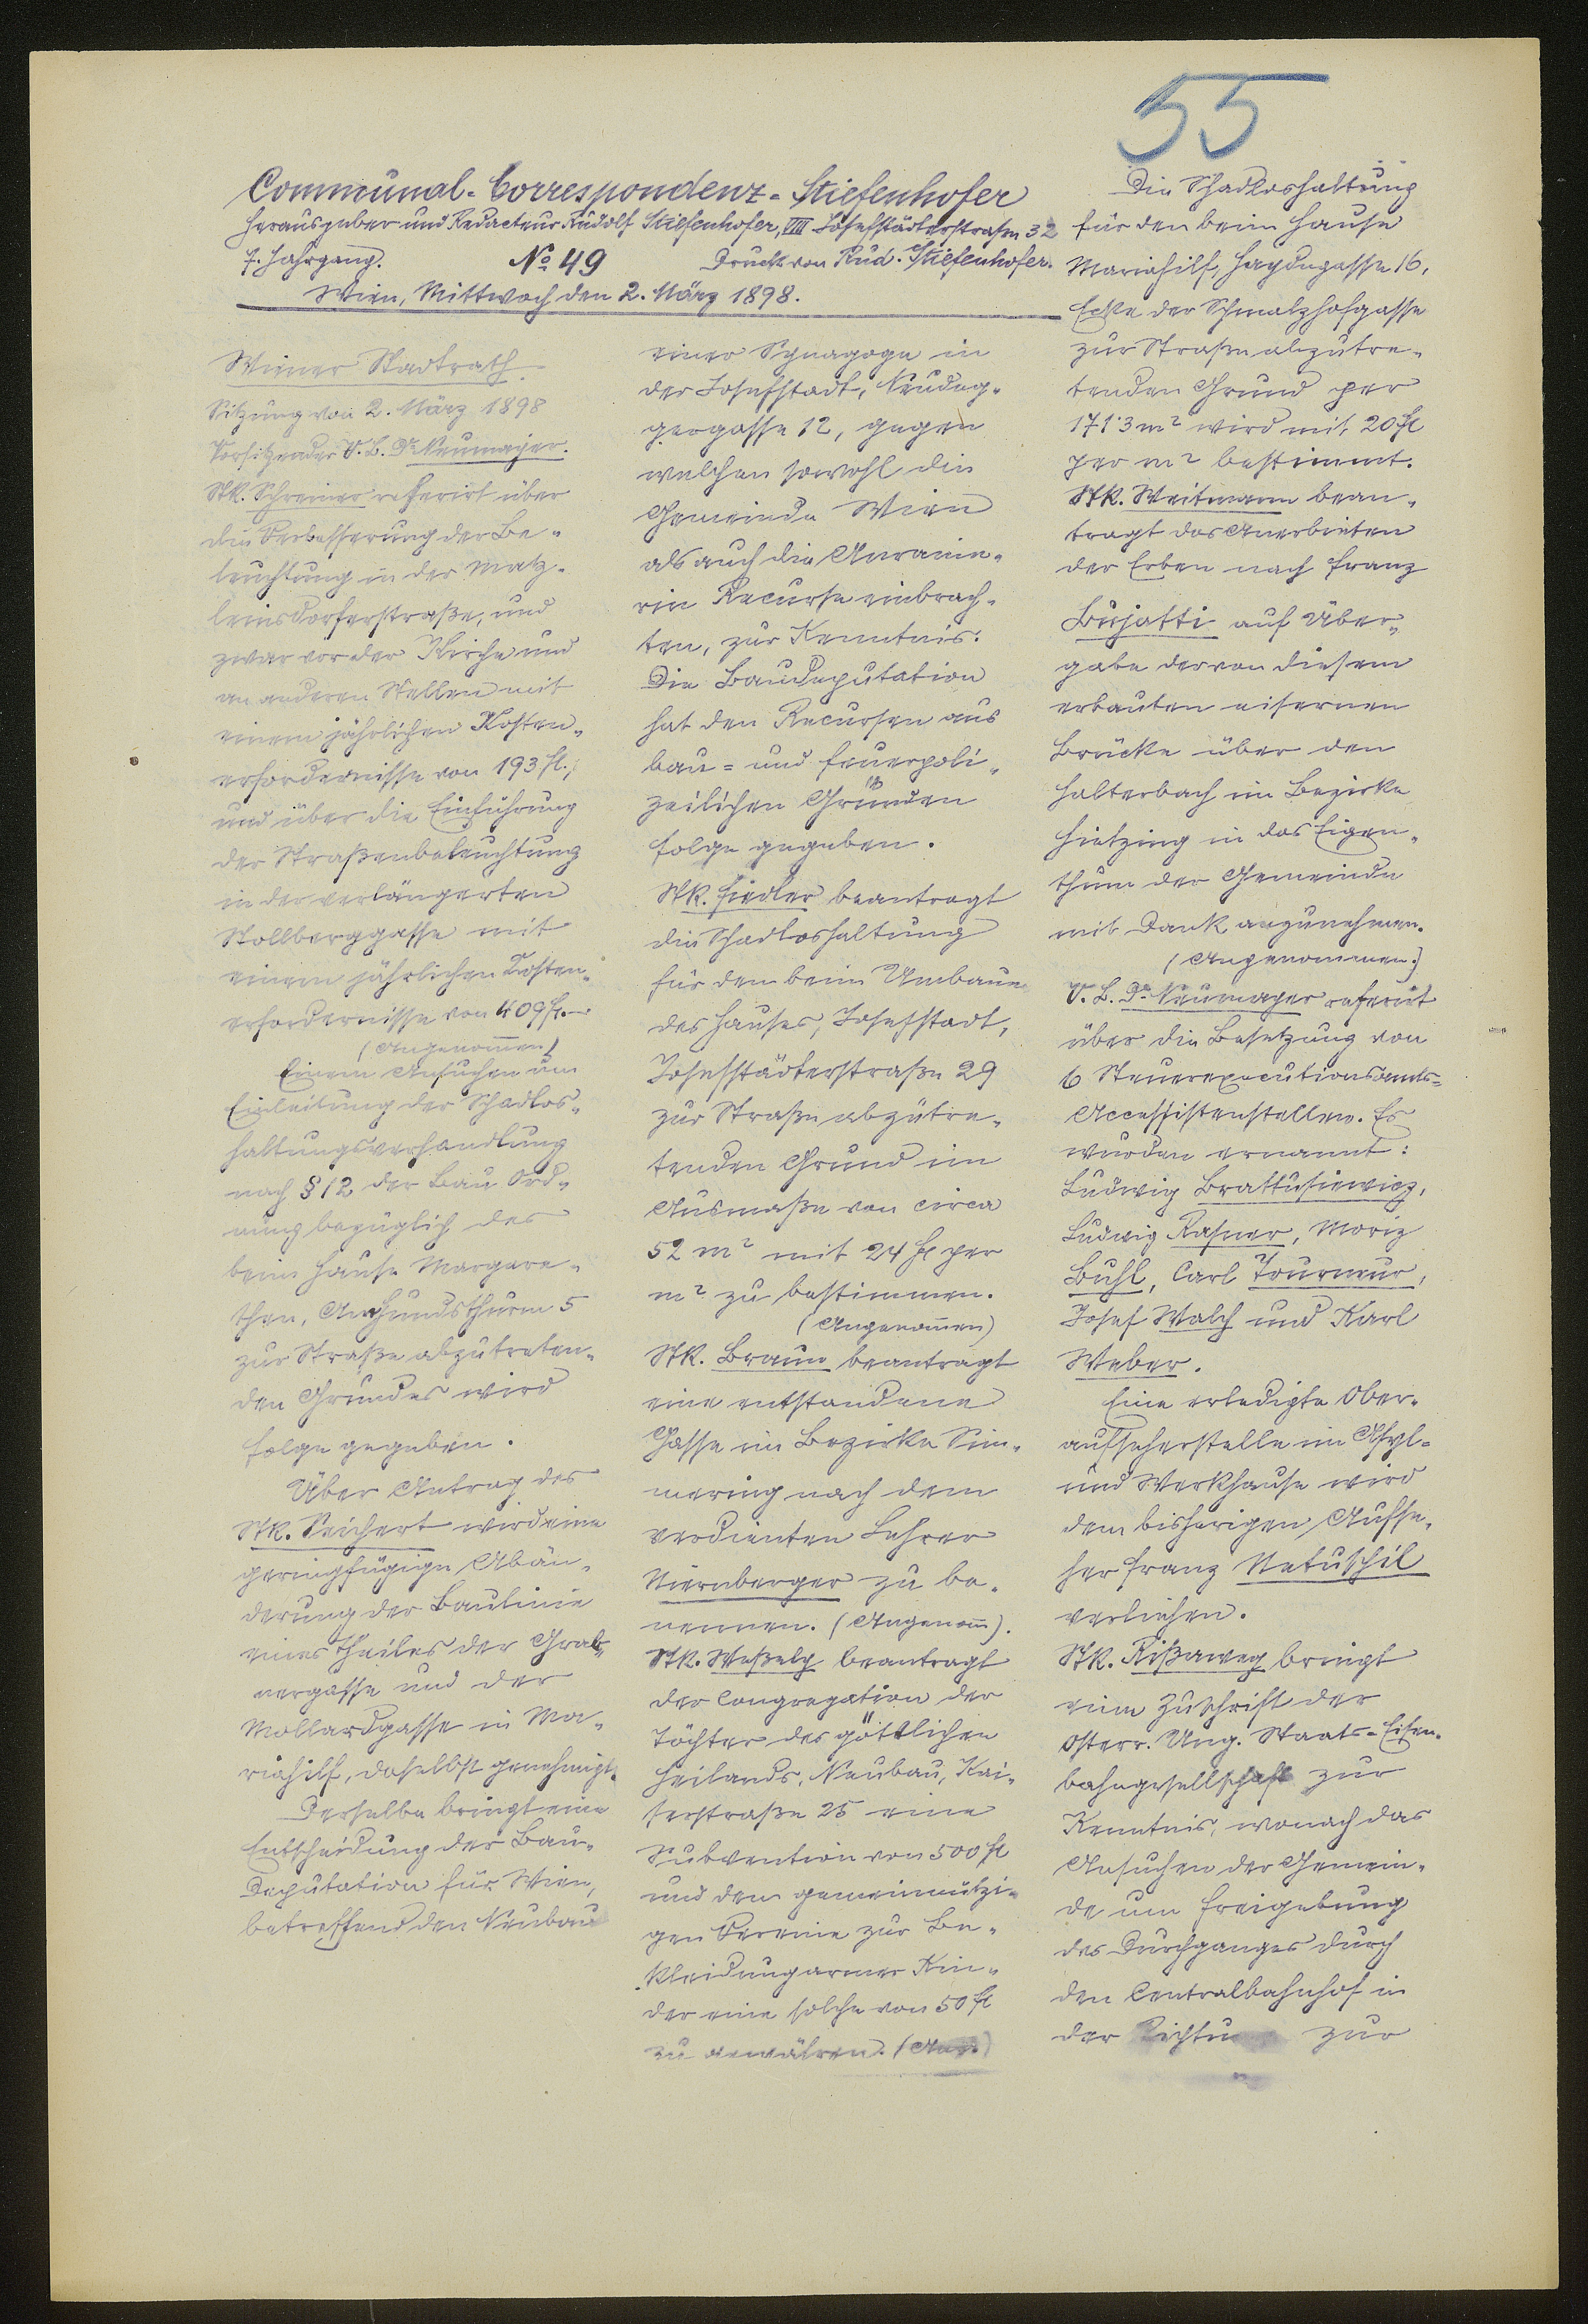 55
Communal-Correspondenz-Stiefenhofer
Herausgeber und Redacteur Rudolf Stiefenhofer, VIII Josefstädterstrasse 32
7. Jahrgang. No 49 Druck von Rud. Stiefenhofer.
Wien, Mittwoch den 2. März 1898.
Wiener Stadtrath.
Sitzung von 2. März 1898
Vorsitzender V.B. Dr Neumayer.
StR. Schreiner referirt über
die Verbesserung der Be-
leuchtung in der Matz-
leinsdorferstraße, und
zwar vor der Kirche und
an anderen Stellen mit
einem jährlichen Kosten-
erfordernisse von 193 fl.,
und über die Einführung
der Straßenbeleuchtung
in der verlängerten
Stollberggasse mit
einem jährlichen Kosten-
erfordernisse von 409 fl.-
(Angenommen)
Einem Ansuchen um
Einleitung der Schadlos-
haltungsverhandlung
nach § 12 der Bau Ord-
nung bezüglich des
beim Hause Margare-
then, Am Hundsthurm 5
zur Straße abzutreten-
den Grundes wird
Folge gegeben.
Über Antrag des
StR. Seichert wird eine
geringfügige Abän-
derung der Baulinie
eines Theiles der Grab-
nergasse und der
Mollardgasse in Ma-
riahilf, daselbst genehmigt.
Derselbe bringt eine
Entscheidung der Bau-
Deputation für Wien,
betreffend den Neubau
einer Synagoge in
der Josefstadt, Neudeg-
gergasse 12, gegen
welchen sowohl die
Gemeinde Wien
als auch die Anraine-
rin Recurse einbrach-
ten, zur Kenntnis:
Die Baudeputation
hat den Recursen aus
bau- und feuerpoli-
zeilichen Gründen
Folge gegeben.
StR. Fiedler beantragt
die Schadloshaltung
für den beim Umbaue
des Hauses, Josefstadt,
Josefstädterstraße 29
zur Straße abzutre-
tenden Grund im
Ausmaße von circa
52 m² mit 24 fl per
m² zu bestimmen.
(Angenommen)
StR. Braun beantragt
eine entstandene
Gasse im Bezirke Sim-
mering nach dem
verdienten Lehrer
Niernberger zu be-
nennen. (Angenom̅).
StR. Weßely beantragt
der Congregation der
Töchter des göttlichen
Heilands, Neubau, Kai-
serstraße 25 eine
Subvention von 500 fl
und dem gemeinnützi-
gen Vereine zur Be-
kleidung armer Kin-
der eine solche von 50 fl
zu gewähren. (Ang.)
Die Schadloshaltung
für den beim Hause
Mariahilf, Haydngasse 16,
Ecke der Schmalzhofgasse
zur Straße abzutre-
tenden Grund per
171·3 m² wird mit 20 fl
per m² bestimmt.
StR. Weitmann bean-
tragt das Anerbieten
der Erben nach Franz
Bujatti auf Über-
gabe der von diesem
erbauten eisernen
Brücke über den
Halterbach im Bezirke
Hietzing in das Eigen-
thum der Gemeinde
mit Dank anzunehmen.
(Angenommen.)
V.B. Dr Neumayer referirt
über die Besetzung von
6 Steuerexecutionsamts-
Accessistenstellen. Es
wurden ernannt:
Ludwig Brattusiewicz,
Ludwig Rasner, Moriz
Buhl, Carl Tourneur,
Josef Walch und Karl
Weber.
Eine erledigte Ober-
aufseherstelle im Asyl-
und Werkhause wird
dem bisherigen Aufse-
her Franz Natuschil
verliehen.
StR. Rißaweg bringt
eine Zuschrift der
Österr. Ung. Staats-Eisen-
bahngesellschaft zur
Kenntnis, wonach das
Ansuchen der Gemein-
de um Freigebung
des Durchganges durch
den Centralbahnhof in
der Richtung zur